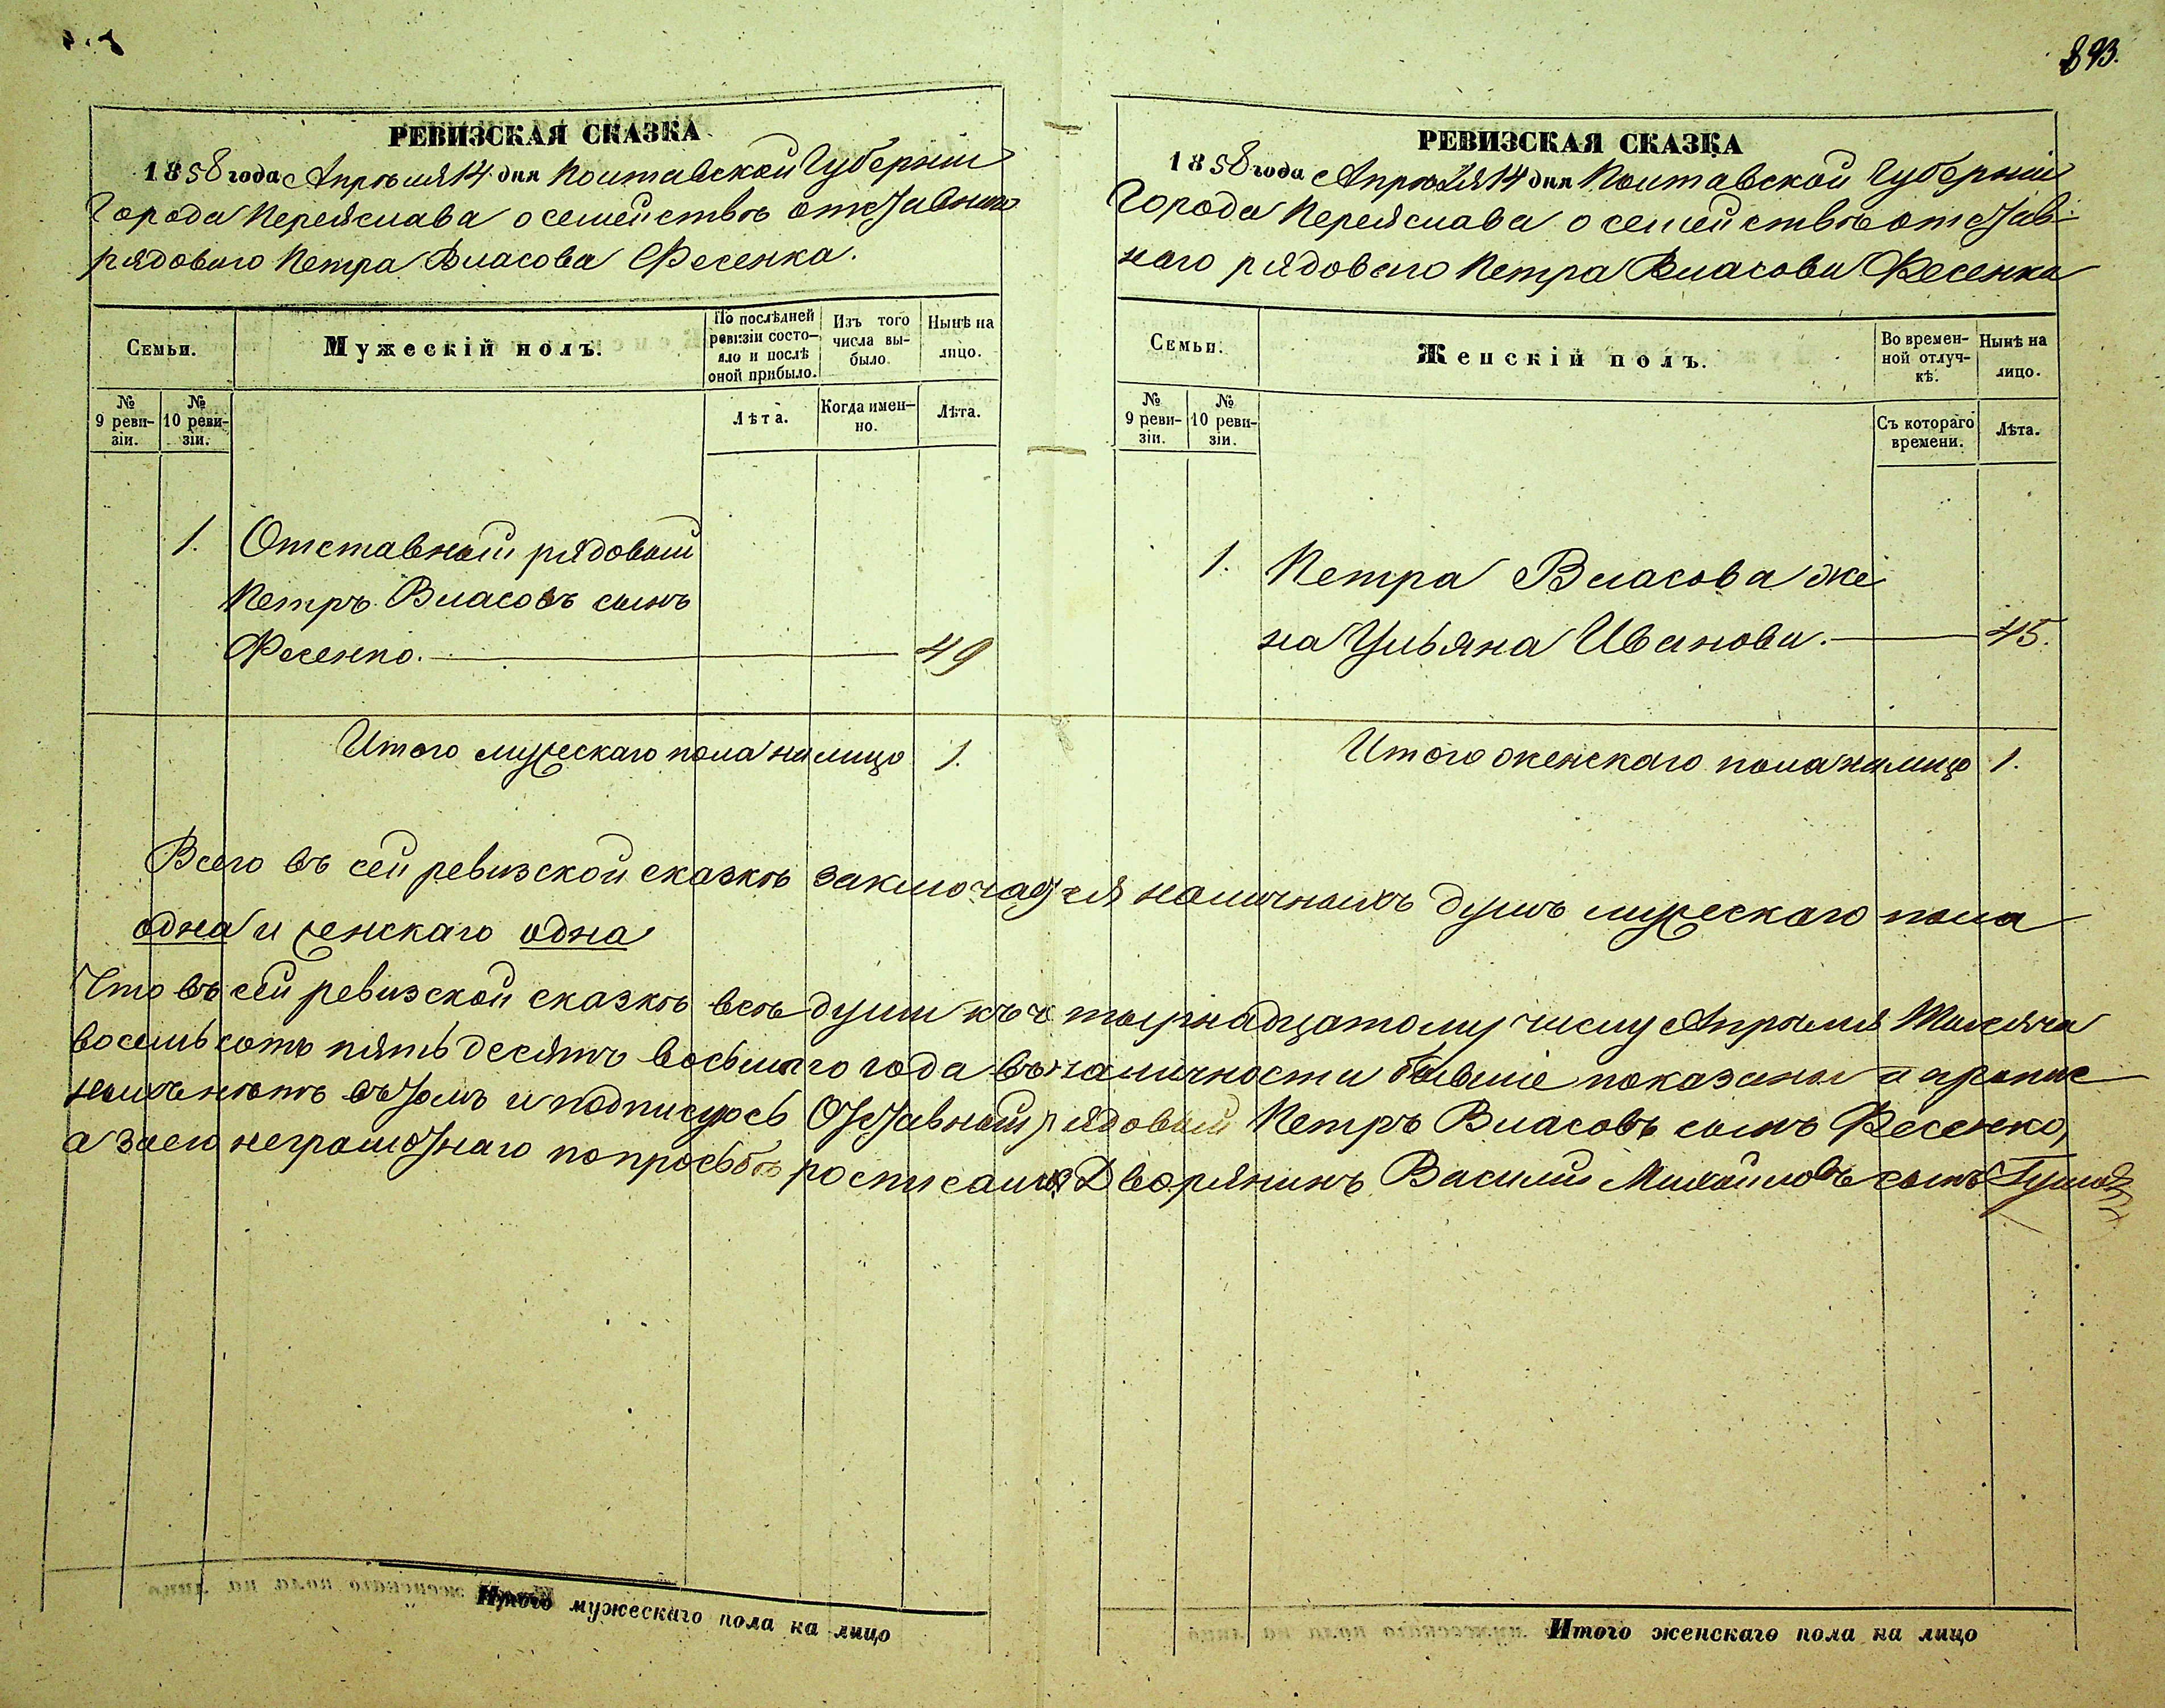 893.
РЕВИЗСКАЯ СКАЗКА
1858 года Апрѣля 14 дня Полтавской Губерніи
Города Переяслава о семействѣ отставнаго
рядоваго Петра Власова Фесенка.
Семьи.
Мужескій полъ.
По послѣдней ревизіи состо-яло и послѣ оной прибыло.
Изъ того числа вы-было.
Нынѣ на лицо.
№ 9 реви-зіи.
№ 10 реви-зіи.
Лѣта.
Когда имен-но.
Лѣта.
1. Отставный рядовый
Петръ Власовъ сынъ
Фесенко. 49
Итого мужескаго пола на лицо 1.
РЕВИЗСКАЯ СКАЗКА
1858 года Апрѣля 14 дня Полтавской Губерніи
Города Переяслава о семействѣ отстав-
наго рядоваго Петра Власова Фесенка
Семьи.
Женскій полъ.
Во времен-ной отлуч-кѣ.
Нынѣ на лицо.
№ 9 реви-зіи.
№ 10 реви-зіи.
Съ котораго времени.
Лѣта.
1. Петра Власова же
на Ульяна Иванова. 45.
Итого женскаго пола на лицо 1.
Всего въ сей ревизской сказкѣ заключается наличныхъ душъ мужескаго пола
одна и женскаго одна
Что въ сей ревизской сказкѣ всѣ души къ четырнадцатому числу Апрѣля
восемьсотъ пятьдесятъ восьмаго года въ наличности бывшіе показаны и пропис
ныхъ нѣтъ въ томъ и подписуюсь Отставный рядовый Петръ Власовъ сынъ Фесенко,
а за его неграмотнаго по просьбѣ росписался Дворянинъ Василий Михайловъ сынъ
Итого мужескаго пола на лицо
Итого женскаго пола на лицо